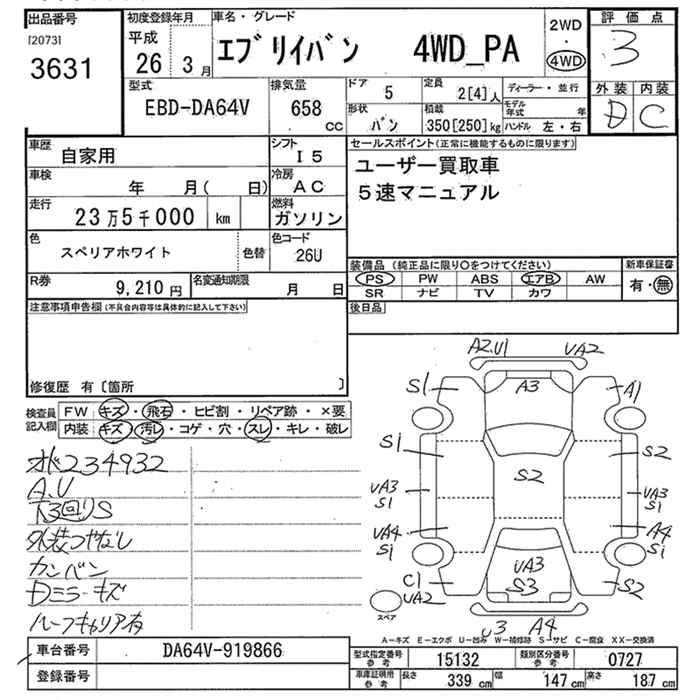 出品番号
[2073]
3631
初度登録年月
平成
26 3月
車名・グレード
エブリイバン 4WD_PA
2WD
・
4WD
評価点
3
外装 内装
D C
型式
EBD-DA64V
排気量
658
cc
ドア
5
定員
2[4]人
形状
バン
積載
350[250]kg
ディーラー・並行
モデル年式 年
ハンドル 左・右
車歴
自家用
シフト
I5
車検
年 月( 日)
冷房
AC
走行
23万5千000 km
燃料
ガソリン
色
スペリアホワイト
色替
色コード
26U
R券
9,210円
名変通知期限
月 日
セールスポイント(正常に機能するものに限ります)
ユーザー買取車
5速マニュアル
装備品 (純正品に限り○をつけてください)
PS PW ABS エアB AW
SR ナビ TV カワ
新車保証書
有・無
後日品
注意事項申告欄(不具合内容等は具体的に記入して下さい)
修復歴 有〔箇所 〕
検査員
記入欄
FW キズ・飛石・ヒビ割・リペア跡・×要
内装 キズ・汚レ・コゲ・穴・スレ・キレ・破レ
オド234932
A.U
下3回りS
外装つやなし
カンバン
Dミラーキズ
ルーフキャリア有
A2.U1 UA2
S1 A3 A1
S1 S2 S2
UA3 S1
UA3 S1
UA4 S1
A4 S1
C1 UA2
UA3 S3
S2
スペア
U3 A4
A-キズ E-エクボ U-凹み W-補修跡 S-サビ C-腐食 XX-交換済
車台番号
DA64V-919866
登録番号
型式指定番号
参考
15132
類別区分番号
参考
0727
車庫証明用
参考
長さ 339cm 幅 147cm 高さ 187cm